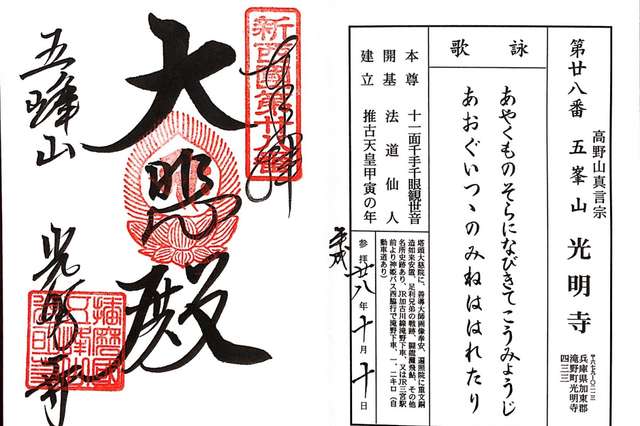 高野山真言宗
第廿八番 五峯山 光明寺
兵庫県加東郡
滝野町光明寺
四三三
詠歌
あやくものそらになびきてこうみょうじ
あおぐいつゝのみねははれたり
本尊 十一面千手千眼観世音
開基 法道仙人
建立 推古天皇甲寅の年
塔頭大慈院に、善導大師画像奉安、遍照院に重文銅
造如来安置、足利兄弟の戦跡、闘龍灘飛鮎、その他
名所史跡あり、JR加古川線滝野下車、又はJR三宮駅
前より神姫バス西脇行で滝野下車、一、二キロ(自
動車道あり)
参拝 廿八年 十月 十日
平成
奉拝
新西國第廿八番
大悲殿
五峰山
光明寺